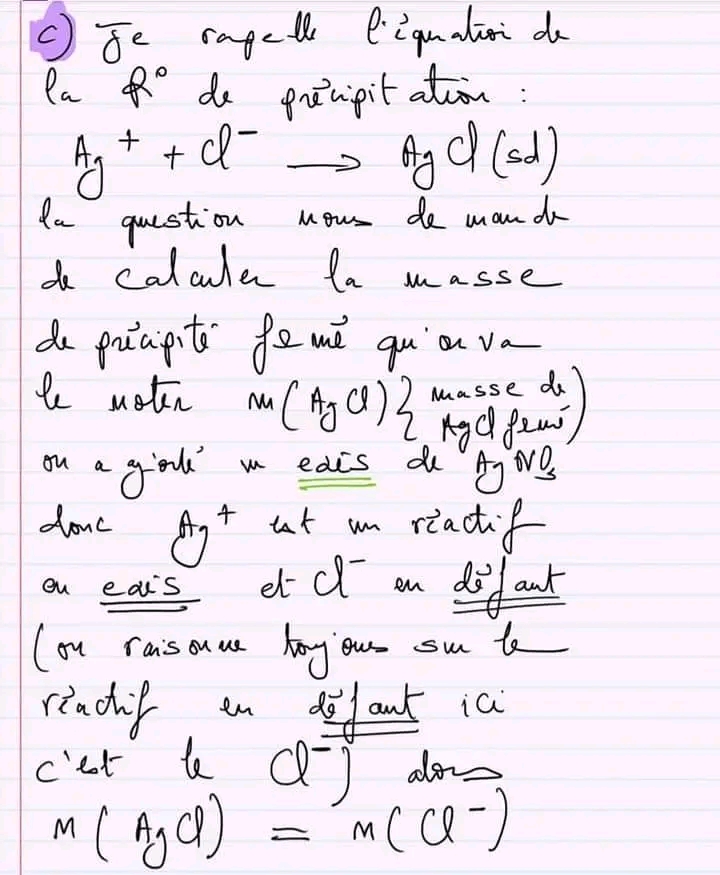 c) Je rapelle l'équation de
la R° de précipitation :
Ag⁺ + Cl⁻ → AgCl (sd)
la question nous demande
de calculer la masse
de précipité formé qu'on va
le noter m(AgCl) { masse de
AgCl formé)
on a ajouté un excès de AgNO₃
donc Ag⁺ est un réactif
en excès et Cl⁻ en défaut
(on raisonne toujours sur le
réactif en défaut ici
c'est le Cl⁻) alors
n(AgCl) = n(Cl⁻)